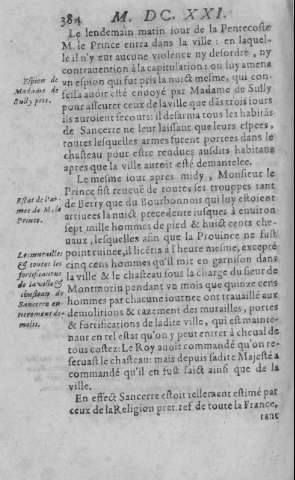 384 M. DC. XXI.
Le lendemain matin iour de la Pentecoste
M. le Prince entra dans la ville : en laquel-
le il n'y eut aucune violence ny desordre, ny
contrauention à la capitulation : on luy amena
Espion de
Madame de
Sully pris.
vn espion qui fut pris la nuict mesme, qui con-
fessa auoir esté enuoyé par Madame de Sully
pour asseurer ceux de la ville que dãs trois iours
ils auroient secours: il desarma tous les habitãs
de Sancerre ne leur laissant que leurs espees,
toutes lesquelles armes furent portees dans le
chasteau pour estre rendues ausdits habitans
apres que la ville auroit esté demantelee.
Le mesme iour apres midy, Monsieur le
Prince fist reueuë de toutes ses trouppes tant
Estat de l'ar-
mee de M. le
Prince.
de Berry que du Bourbonnois qui luy estoient
arriuees la nuict precedente iusques à enuiron
sept mille hommes de pied & huict cents che-
uaux, lesquelles afin que la Prouince ne fust
Les murailles
& toutes les
fortifications
de la ville &
chasteau de
Sancerre en-
tierement de-
molies.
point ruinee, il licētia à l'heure mesme, excepté
cinq cens hommes qu'il mit en garnison dans
la ville & le chasteau sous la charge du sieur de
Montmorin pendant vn mois que quinze cens
hommes par chacune iournee ont trauaillé aux
demolitions & razement des murailles, portes
& fortifications de ladite ville, qui est mainte-
nant en tel estat qu'on y peut entrer à cheual de
tous costez: Le Roy auoit commandé qu'on re-
seruast le chasteau: mais depuis sadite Majesté a
commandé qu'il en fust faict ainsi que de la
ville.
En effect Sancerre estoit tellement estimé par
ceux de la Religion pret. ref. de toute la France,
tant